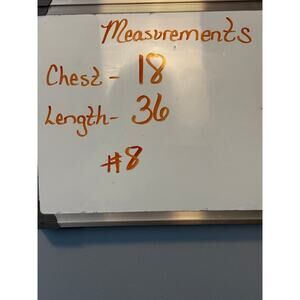 Measurements
Chest - 18
Length - 36
#8